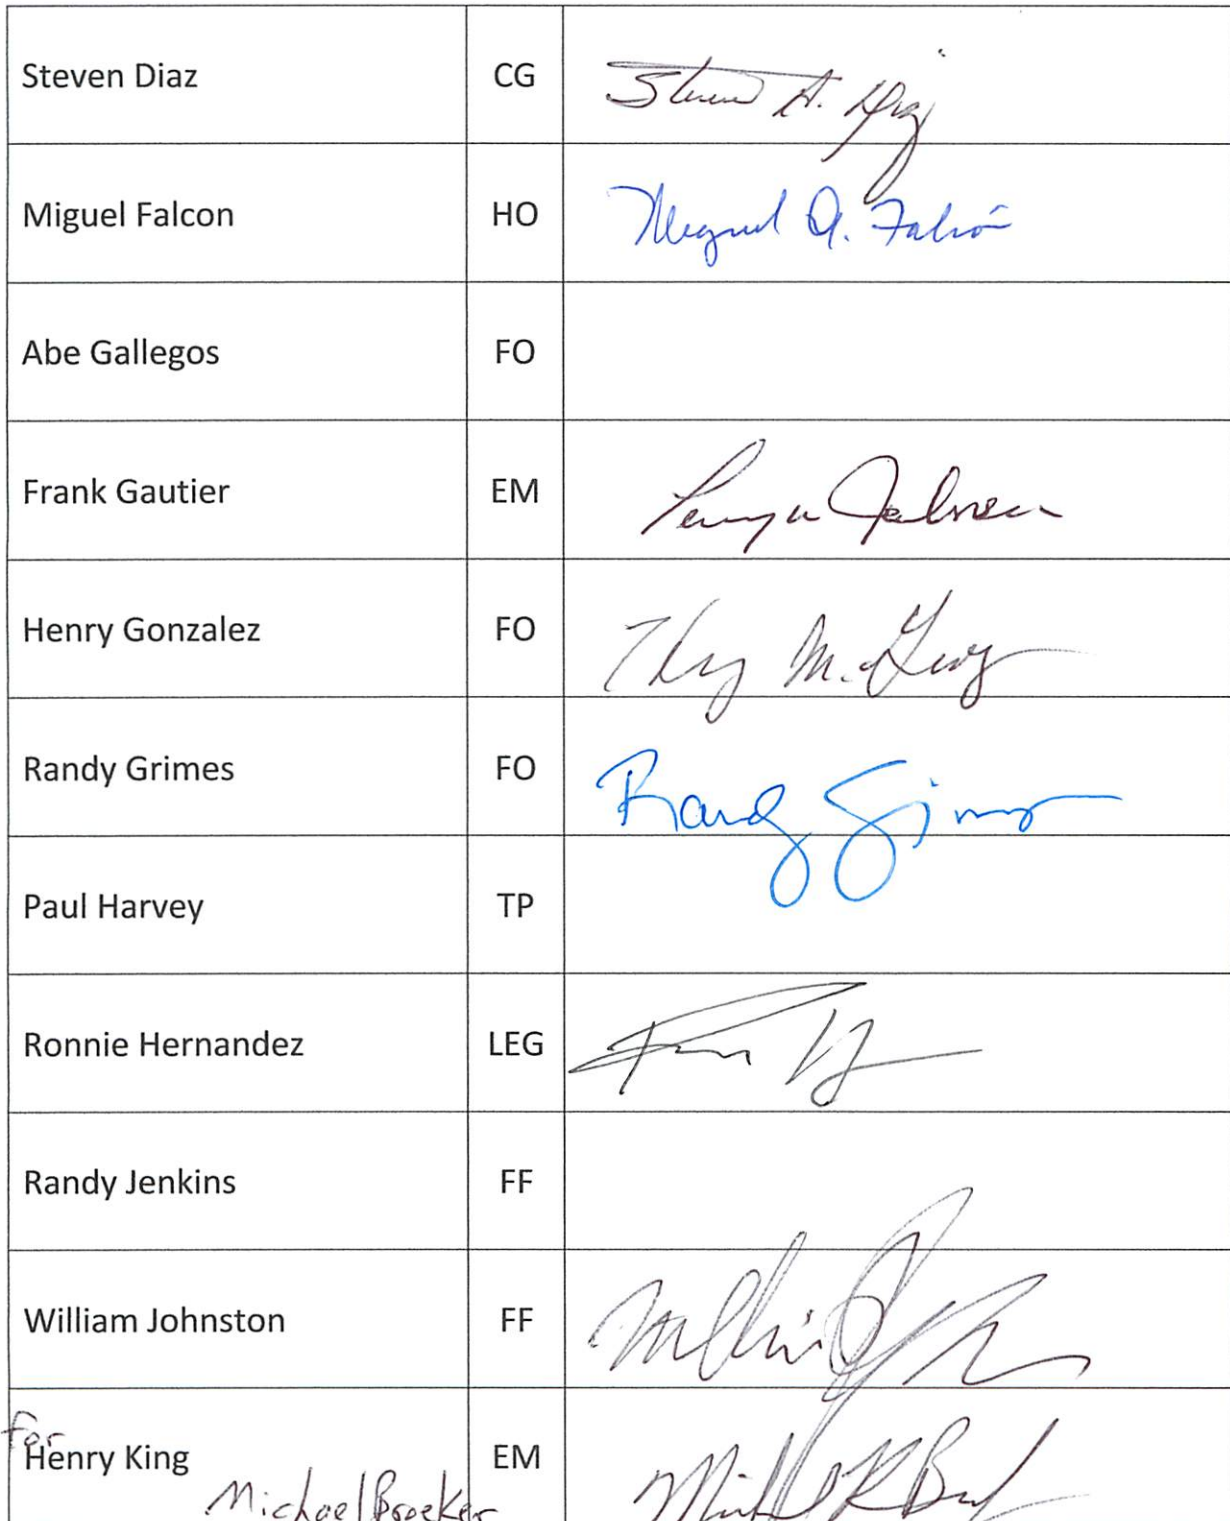 Steven Diaz CG Steven A. Diaz
Miguel Falcon HO Miguel A. Falcón
Abe Gallegos FO
Frank Gautier EM
Henry Gonzalez FO
Randy Grimes FO Randy Grimes
Paul Harvey TP
Ronnie Hernandez LEG
Randy Jenkins FF
William Johnston FF
for
Henry King EM
Michael Broeker